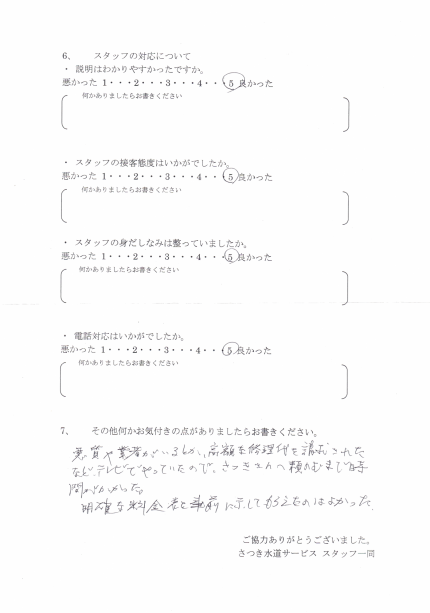 6、 スタッフの対応について
・ 説明はわかりやすかったですか。
悪かった 1・・・2・・・3・・・4・・・5 良かった
何かありましたらお書きください
・ スタッフの接客態度はいかがでしたか。
悪かった 1・・・2・・・3・・・4・・・5 良かった
何かありましたらお書きください
・ スタッフの身だしなみは整っていましたか。
悪かった 1・・・2・・・3・・・4・・・5 良かった
何かありましたらお書きください
・ 電話対応はいかがでしたか。
悪かった 1・・・2・・・3・・・4・・・5 良かった
何かありましたらお書きください
7、 その他何かお気付きの点がありましたらお書きください。
悪質な業者がいるとか、高額な修理代を請求された
などテレビでやっていたので、さつきさんへ頼のむまで時
間がかかった。
明確な料金を事前に示してもらえたのはよかった。
ご協力ありがとうございました。
さつき水道サービス スタッフ一同